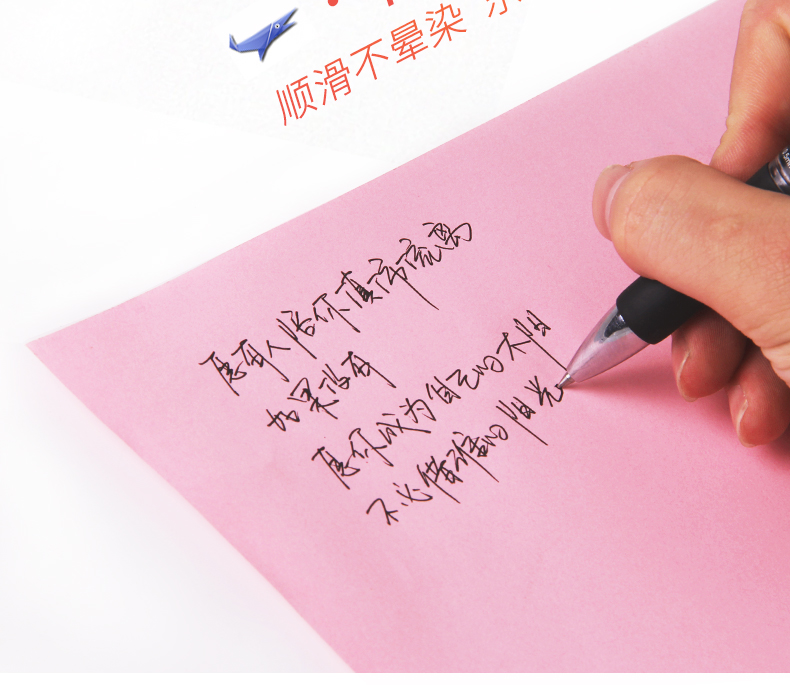 顺滑不晕染
愿有人陪你颠沛流离
如果没有
愿你成为自己的太阳
不必借谁的阳光